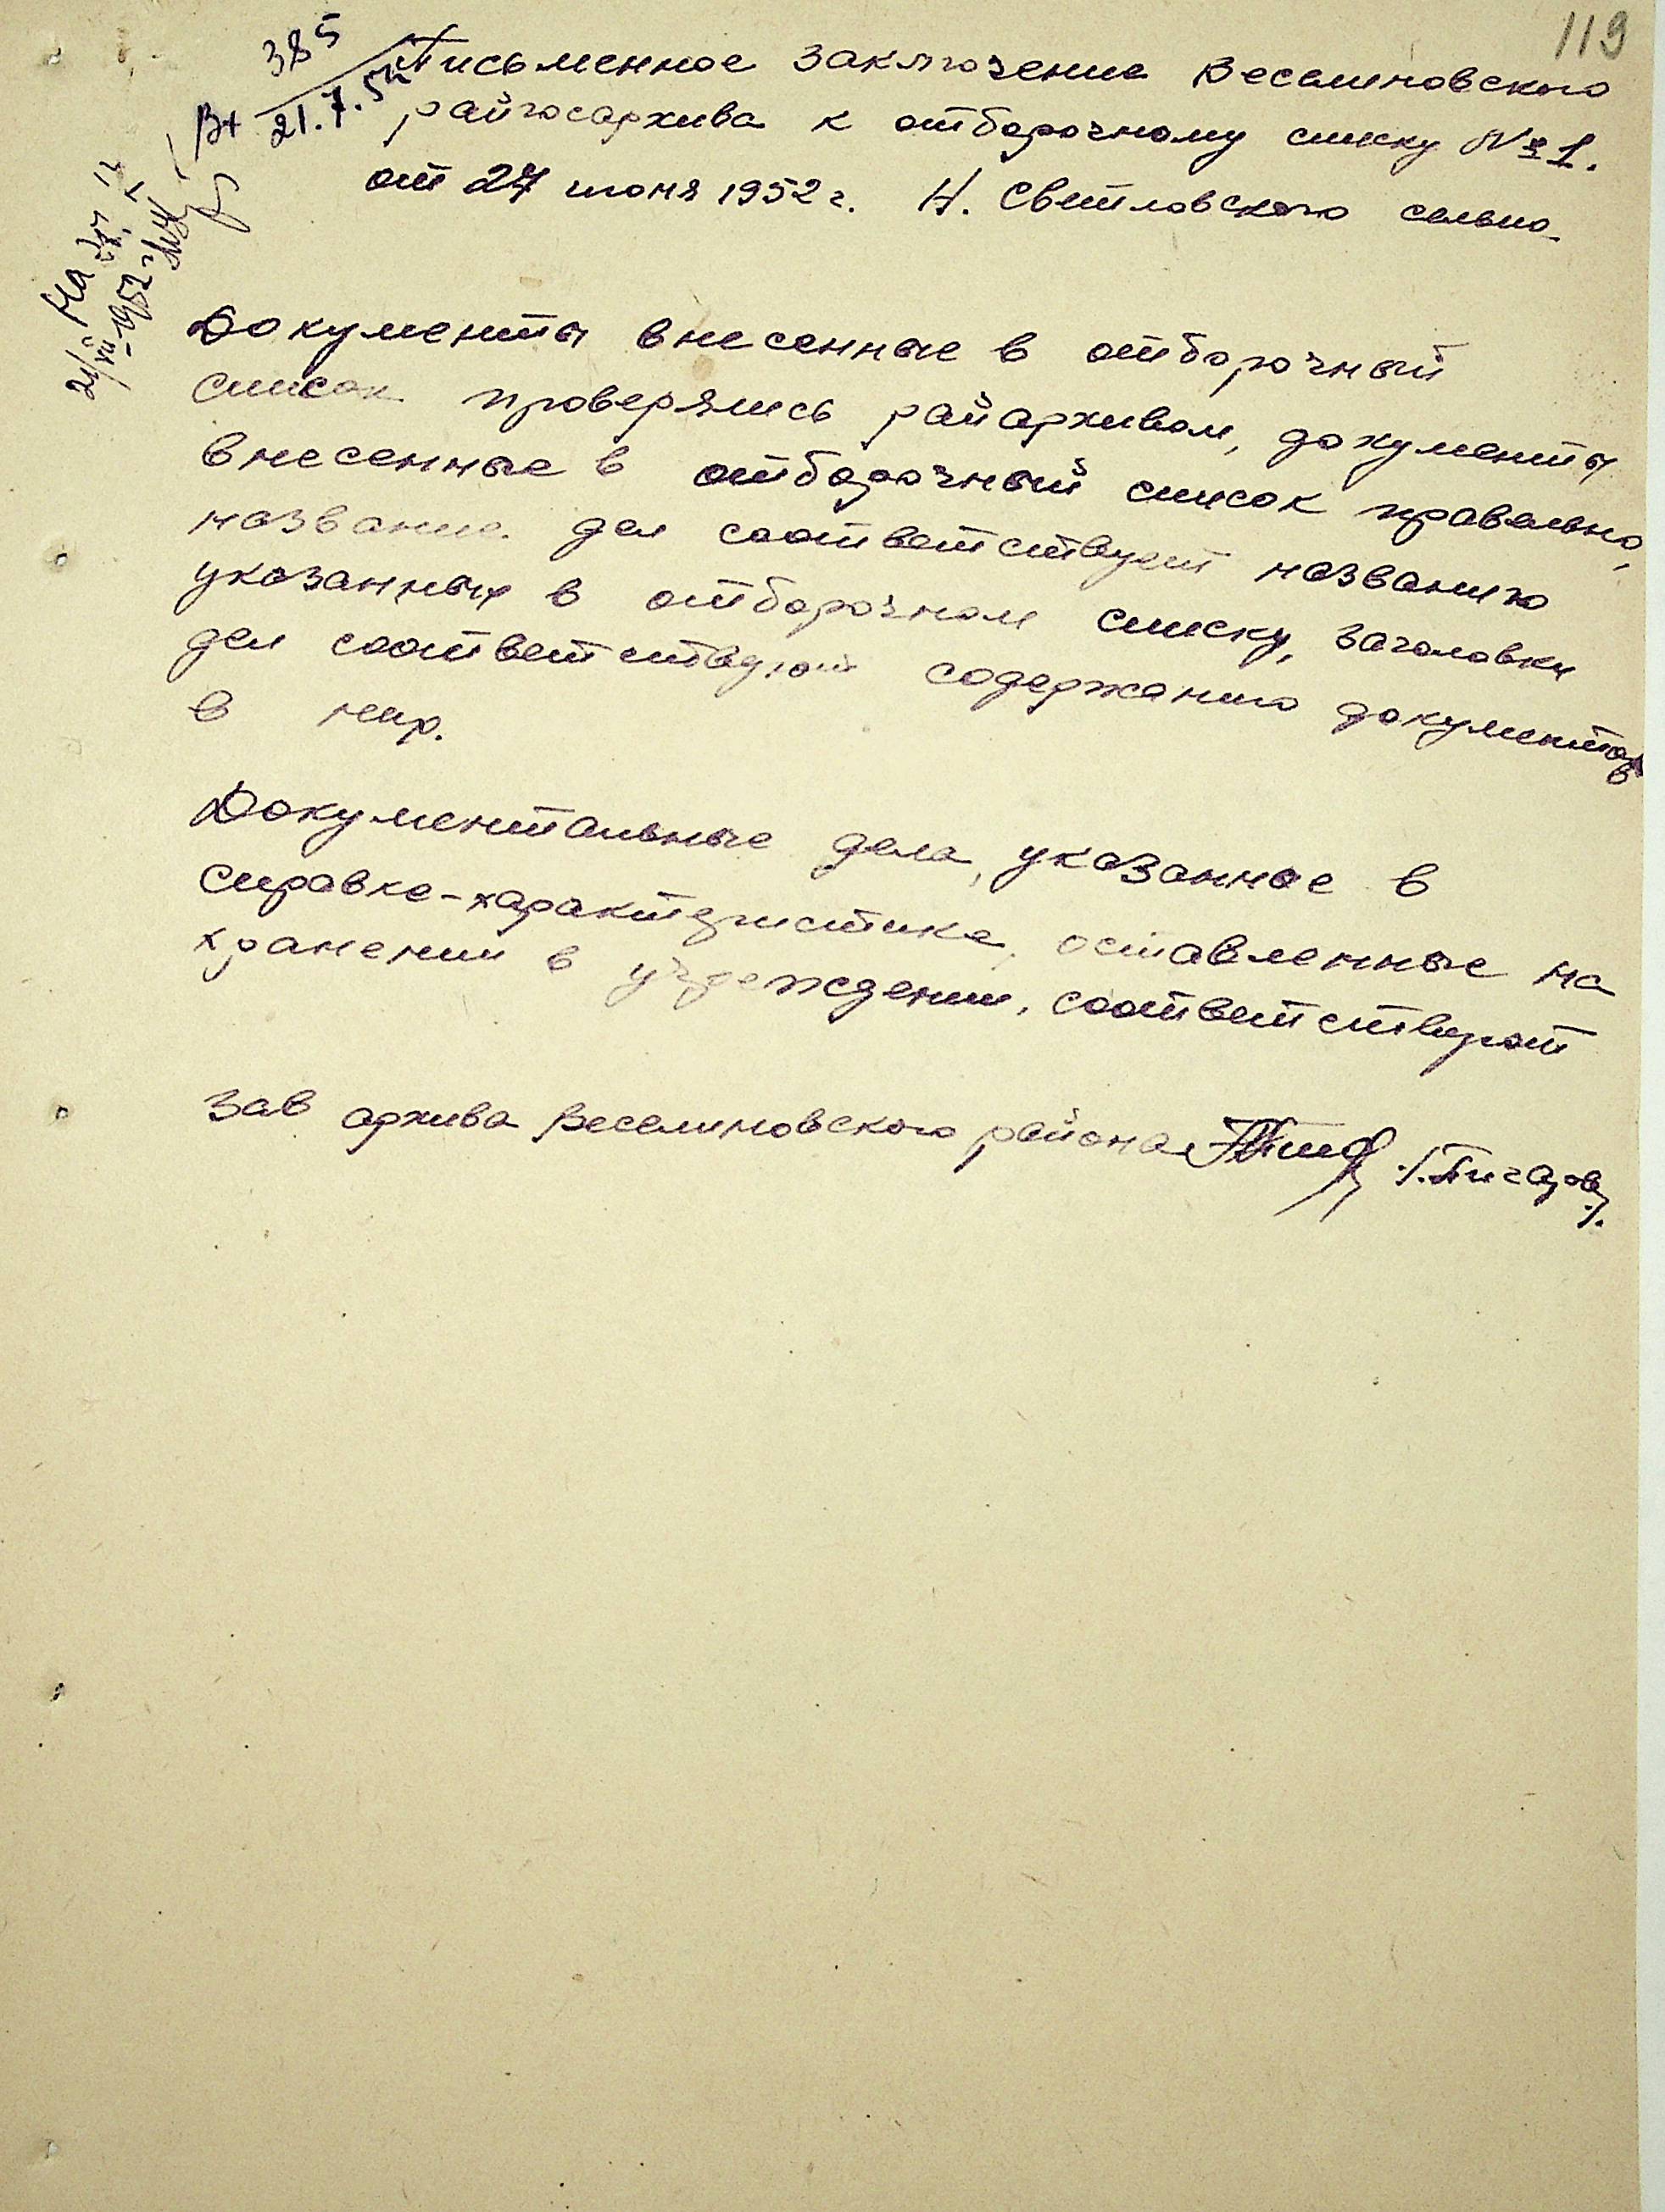 119
385
Вх 21.7.52
Письменное заключение Веселиновского
райгосархива к отборочному списку №1.
от 27 июня 1952 г. Н. Светловского сельпо
Документы внесенные в отборочный
список проверялись райархивом, документы
внесенные в отборочный список правильно,
название дел соответствует названию
указанных в отборочном списку, заголовки
дел соответствуют содержанию документов
в них.
Документальные дела, указанные в
справке-характеристике, оставленные на
хранении в учреждении, соответствуют
Зав архива Веселиновского района